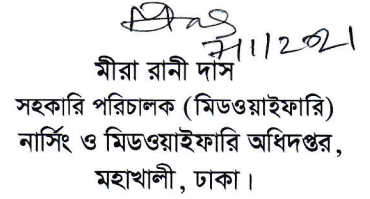 7/1/2021
মীরা রানী দাস
সহকারি পরিচালক (মিডওয়াইফারি)
নার্সিং ও মিডওয়াইফারি অধিদপ্তর,
মহাখালী, ঢাকা।